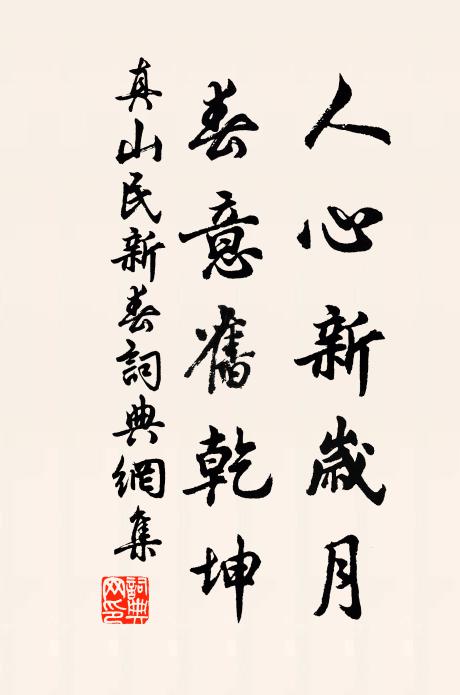 人心新歲月
春意舊乾坤
真山民新春詞典網集
詞典網印